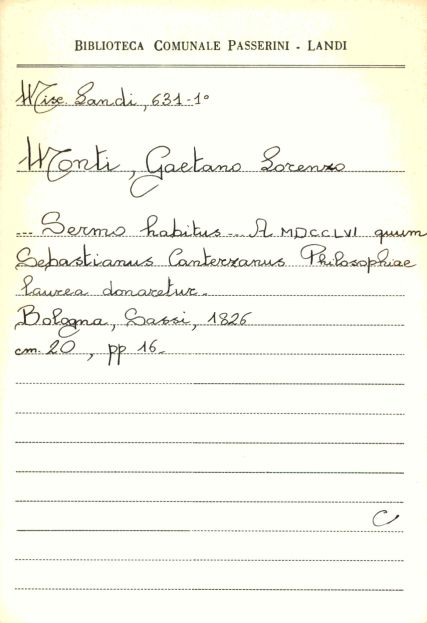 BIBLIOTECA COMUNALE PASSERINI - LANDI
Misc. Landi, 631-1°
Monti, Gaetano Lorenzo
... Sermo habitus ... A MDCCLVI quum
Sebastianus Canterzanus Philosophiae
laurea donaretur.
Bologna, Sassi, 1826
cm. 20, pp 16.
C